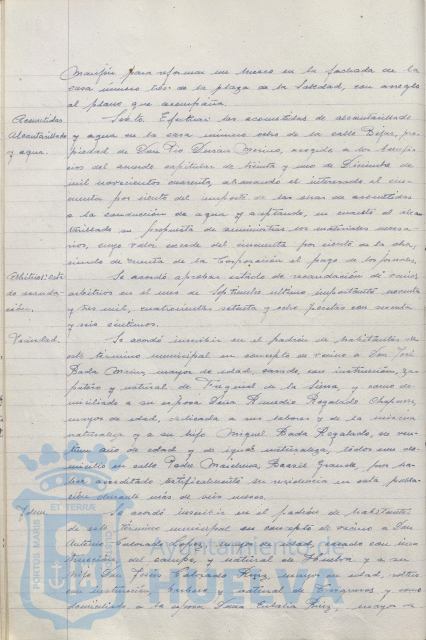 para reformar un hueco en la fachada de la
casa número tres de la plaza de la Soledad, con arreglo
al plano que acompaña.
Acometidas
Alcantarillado
y agua.
Sexto. Efectuar las acometidas de alcantarillado
y agua en la casa número ocho de la calle Béjar, pro-
piedad de Don Pío Durán Merino, acogida a los benefi-
cios del acuerdo capitular de treinta y uno de Diciembre de
mil novecientos cuarenta, abonando el interesado el cin-
cuenta por ciento del importe de las obras de acometidas
a la conducción de agua y aceptando, en cuanto al alcan-
tarillado su propuesta de suministrar los materiales necesa-
rios, cuyo valor excede del cincuenta por ciento de la obra,
siendo de cuenta de la Corporación el pago de los jornales.
Se acordó aprobar estado de recaudación de varios
arbitrios en el mes de Septiembre último importante
y tres mil, cuatrocientas setenta y ocho pesetas con
y seis céntimos.
Vecindad.
Se acordó inscribir en el padrón de habitantes de
este término municipal en concepto de vecino a Don José
Bada mayor de edad, casado, con instrucción, za-
patero y natural de Fregenal de la Sierra, y como do-
miciliado a su esposa Doña Remedio Regalado Chaparro,
mayor de edad, dedicada a sus labores y de la misma
naturaleza y a su hijo Miguel Bada Regalado, de vein-
tiun año de edad y de igual naturaleza, todos con do-
micilio en calle Padre Marchena, Barril Grande, por ha-
ber acreditado testificalmente su residencia en esta pobla-
ción durante más de seis meses.
Idem
Se acordó inscribir en el padrón de habitantes
de este término municipal en concepto de vecino a Don
Antonio López, mayor de edad, casado con ins-
trucción, del campo, y natural de Huelva y a su
hijo Don Jesús Ruiz, mayor de edad, soltero
con instrucción, barbero y natural de y como
domiciliado a la esposa Doña Eulalia Ruiz, mayor de
PORTUS MARIS
ET TERRÆ
Ayuntamiento de
HUELVA